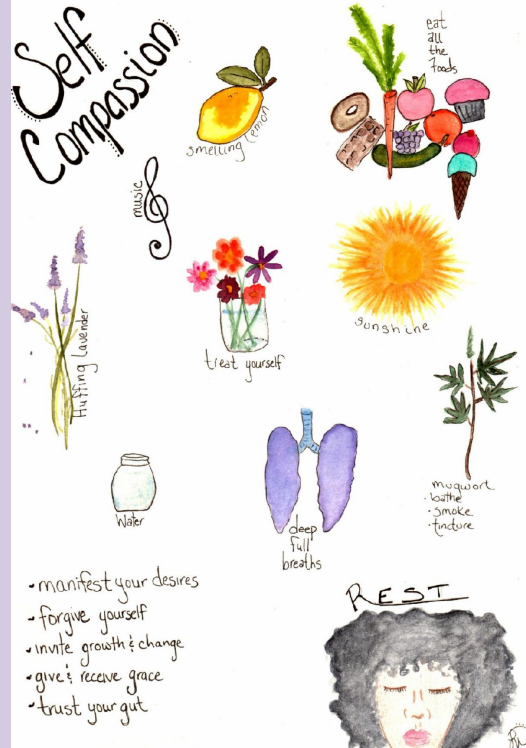 Self
Compassion
smelling lemon
eat
all
the
foods
music
Huffing lavender
treat yourself
sunshine
Water
deep
full
breaths
mugwort
· bathe
· smoke
· tincture
- manifest your desires
- forgive yourself
- invite growth & change
- give & receive grace
- trust your gut
REST